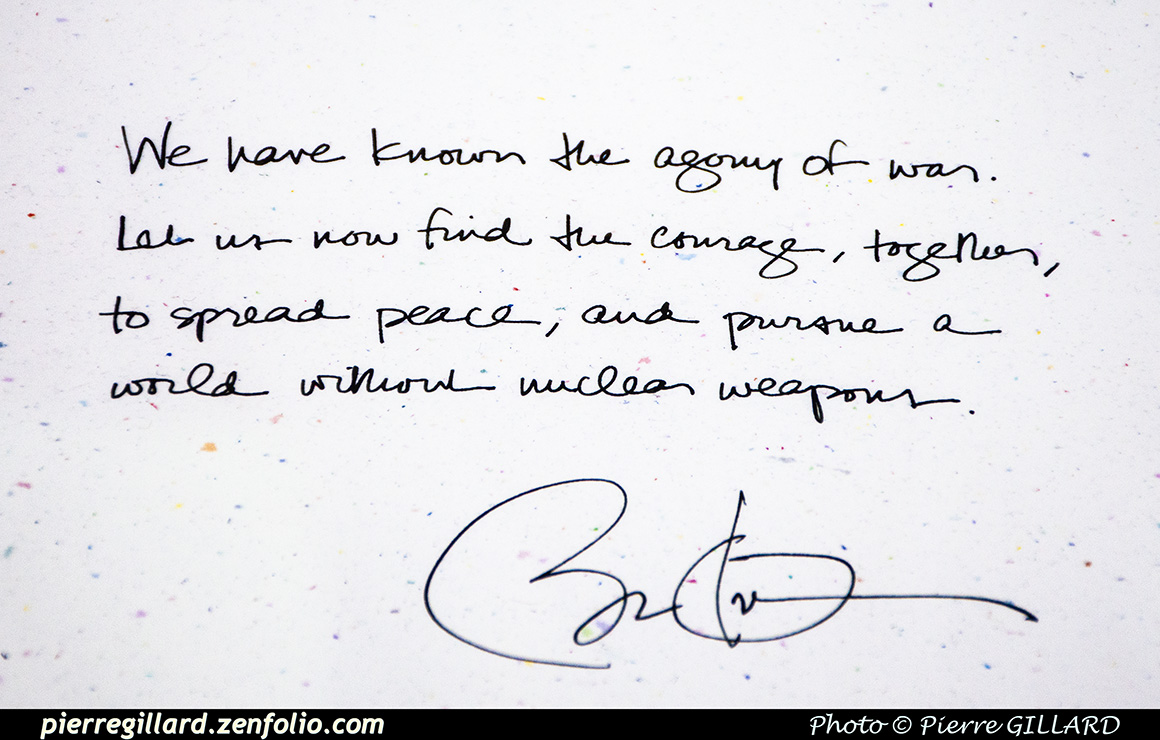 We have known the agony of war.
Let us now find the courage, together,
to spread peace, and pursue a
world without nuclear weapons.
pierregillard.zenfolio.com
Photo © Pierre GILLARD